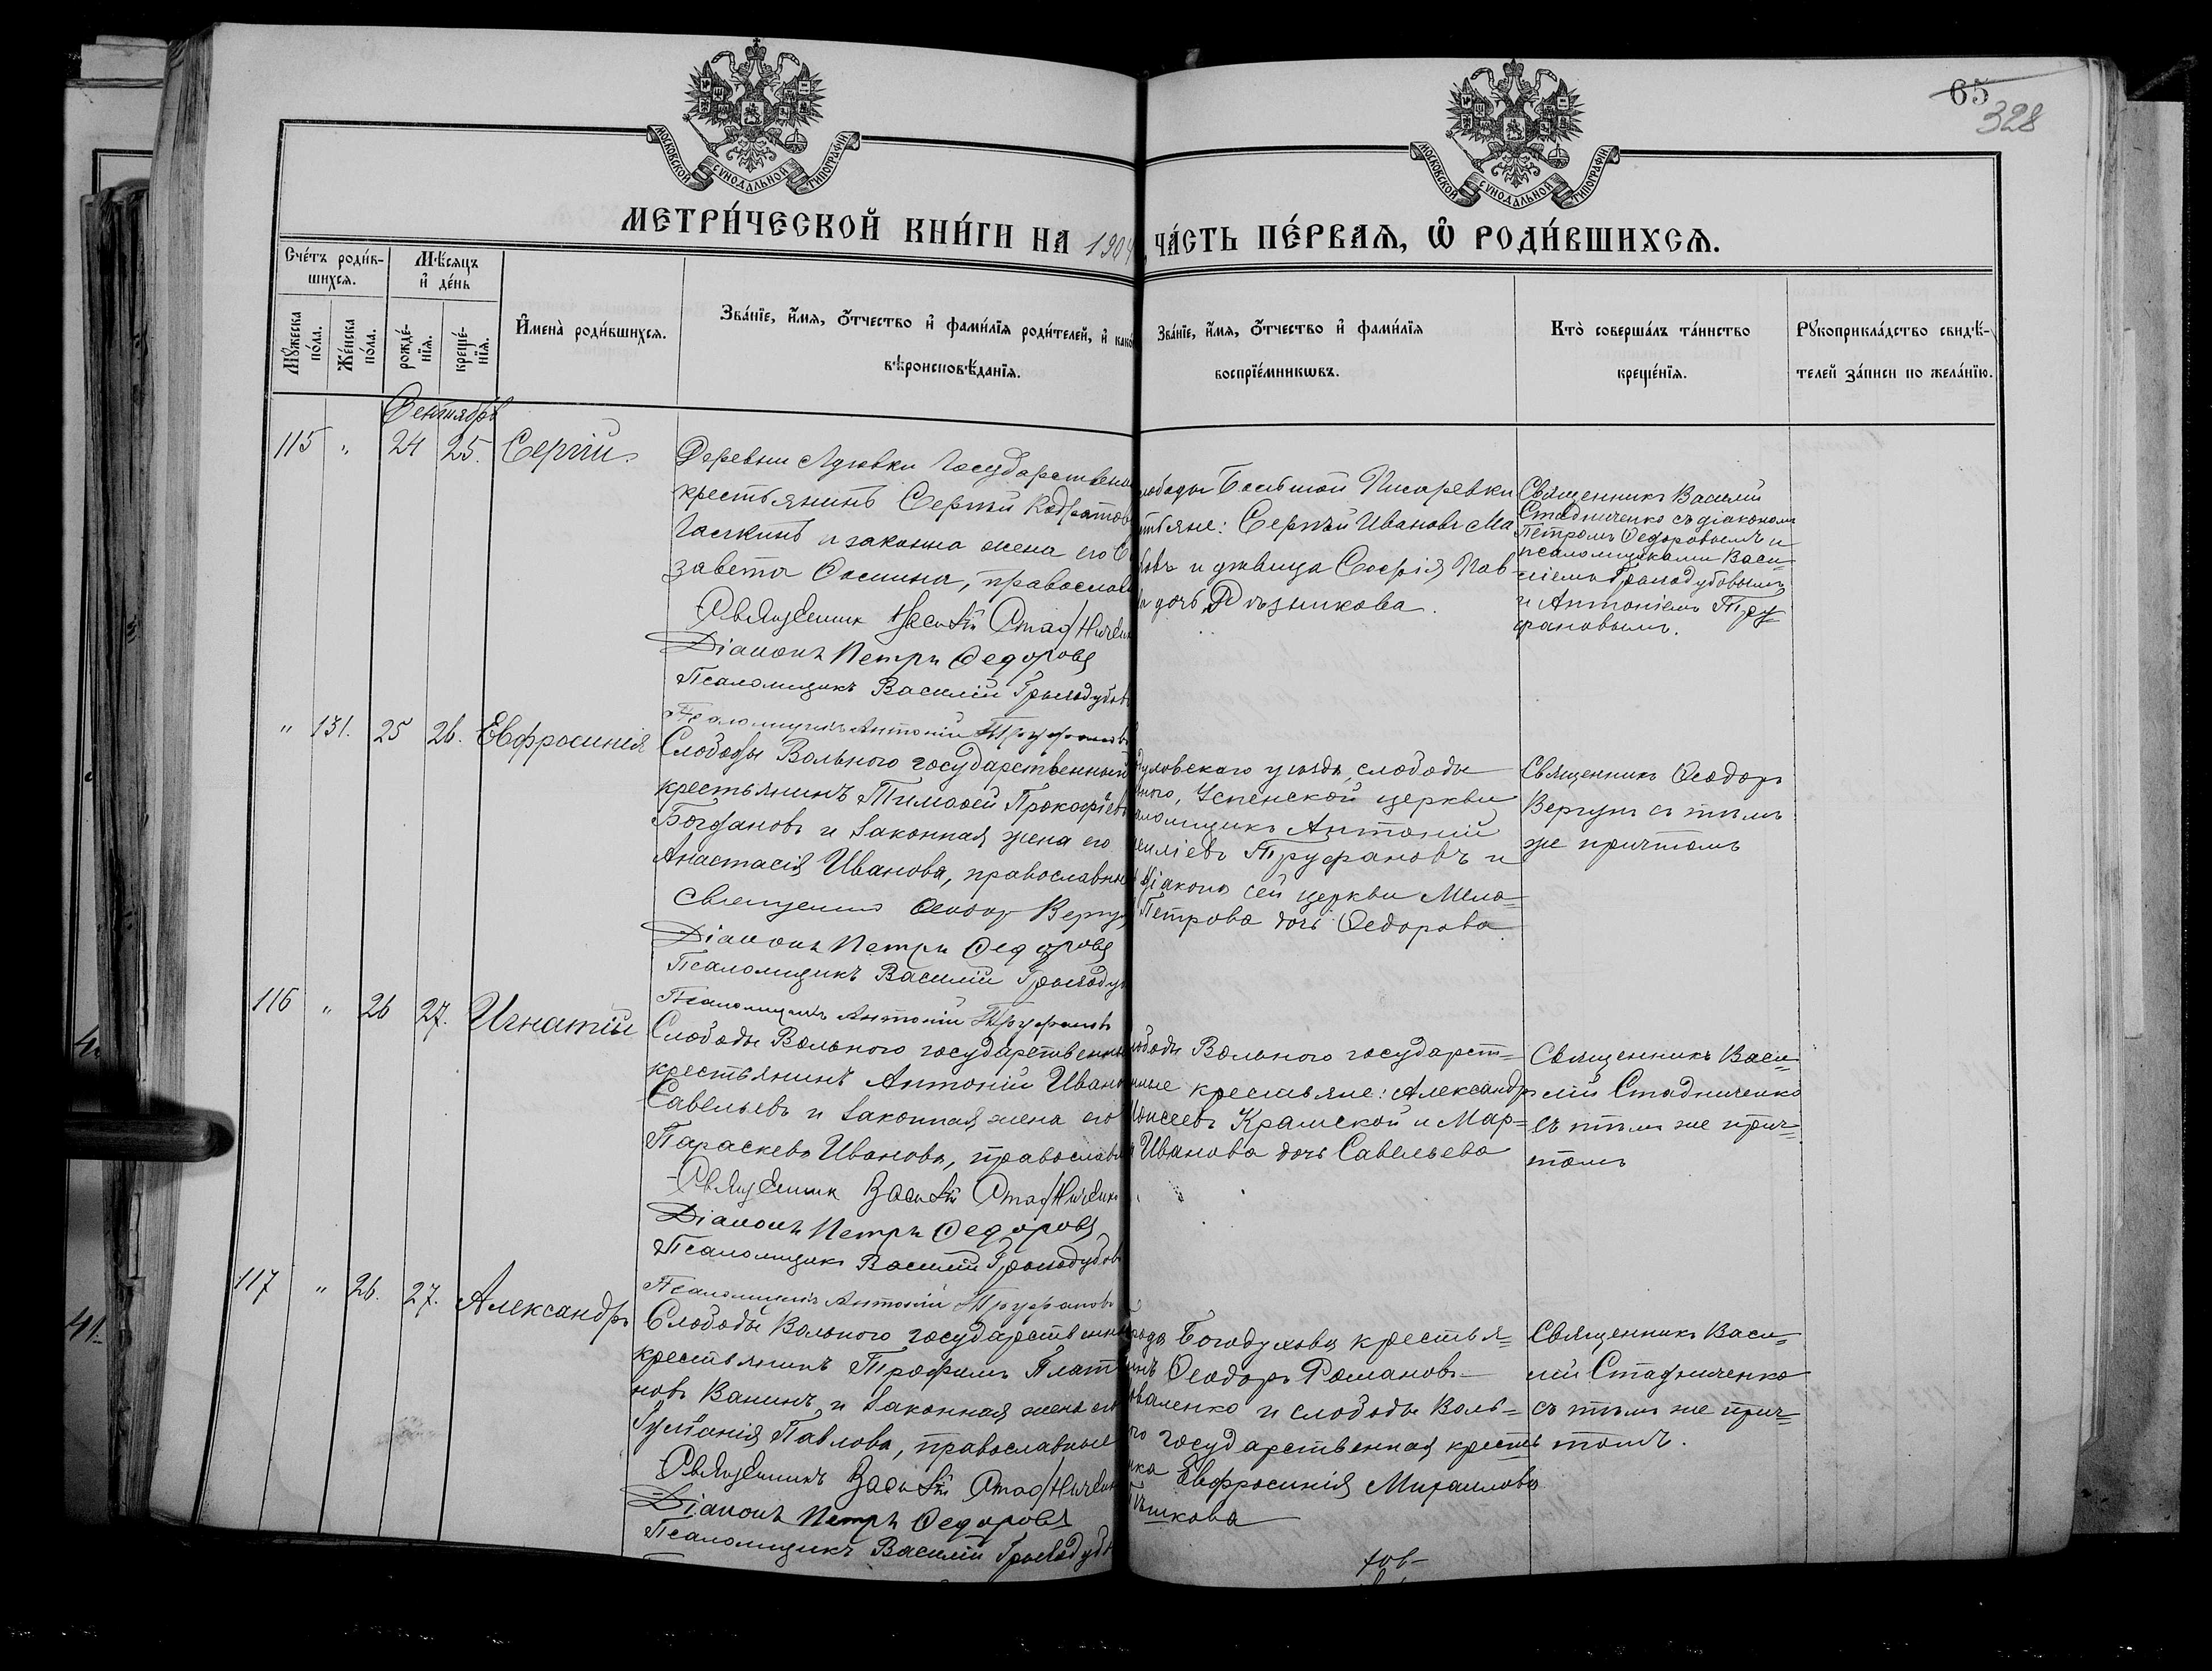 65
328
МОСКОВСКОЙ СУНОДАЛЬНОЙ ТИПОГРАФІИ
МОСКОВСКОЙ СУНОДАЛЬНОЙ ТИПОГРАФІИ
МЕТРИ́ЧЕСКОЙ КНИ́ГИ НА 1904 ЧА́СТЬ ПЕ́РВАѦ, Ѡ҆ РОДИ́ВШИХСѦ.
Сче́тъ роди́в-
шихсѧ.
Мѣ́сѧцъ
и҆ де́нь
Мꙋ́жеска
по́ла.
Же́нска
по́ла.
рожде́-
нїѧ.
креще́-
нїѧ.
И҆мена̀ роди́вшихсѧ.
Зва́нїе, и҆́мѧ, о҆́тчество и҆ фами́лїѧ роди́телей, и҆ како́
вѣроисповѣ́данїѧ.
Зва́нїе, и҆́мѧ, о҆́тчество и҆ фами́лїѧ
воспрїе́мникѡвъ.
Кто̀ соверша́лъ та́инство
креще́нїѧ.
Рꙋкоприкла́дство свидѣ́-
телей за́писи по жела́нїю.
Сентябрь
115 " 24 25. Сергій.
Деревни Государственн
крестьянинъ Сергѣй
и законна жена его Е
завета православ
Священник Василій Стадничен
Діаконъ Петръ Федоровъ
Псаломщикъ Василій Громодубов
Псаломщикъ Антоній Труфановъ
лободы Большой Писаревки
стьяне: Сергѣй Ивановъ Ма
овъ и дѣвица Софія Пав-
а дочь Рѣзникова.
Священникъ Василій
Стадниченко съ діакономъ
Петромъ Федоровымъ и
псаломщиками Васи-
ліемъ Громодубовымъ
и Антоніемъ Тру=
фановымъ.
" 131. 25 26. Евфросинія
Слободы Вольного государственный
крестьянинъ Тимоѳей Прокофіевъ
Богдановъ и законная жена его
Анастасія Иванова, православны
священникъ Ѳеодор Вергун
Діаконъ Петръ Федоровъ
Псаломщикъ Василій Громоду
Псаломщикъ Антоній Труфановъ
духовскаго уѣзда, слободы
ного, Успенской церкви
аломщикъ Антоній
силіевъ Труфановъ и
діакона сей церкви Мела=
Петрова дочь Ѳедорова
Священникъ Ѳеодоръ
Вергунъ съ тѣмъ
же причтомъ
116 " 26 27. Игнатій
Слободы Вольного государственны
крестьянинъ Антоній Ивано
Савельевъ и законная жена его
Параскева Иванова, православн
Священник Василій Стадниченк
Діаконъ Петръ Федоровъ
Псаломщикъ Василій Громодубов
Псаломщикъ Антоній Труфановъ
лободы Вольного государст=
нные крестьяне: Александръ
Моисеевъ Крамской и Мар=
а Иванова дочь Савельева
Священникъ Васи=
лій Стадниченко
съ тѣмъ же прич=
томъ
117 " 26. 27. Александръ
Слободы Вольного государственны
крестьянинъ Трофимъ Плат
новъ Ванинъ и законная жена его
Гликерія Павлова, православные
Священникъ Василій Стадничен
Діаконъ Петръ Федоровъ
Псаломщикъ Василій Громодуб
рода Богодухова крестья=
инъ Ѳеодоръ Романовъ
оваленко и слободы Воль=
го государственная кресть
нка Евфросинія Михаилова
Пѣшкова
Священникъ Васи=
лій Стадниченко
съ тѣмъ же прич=
томъ.
41.